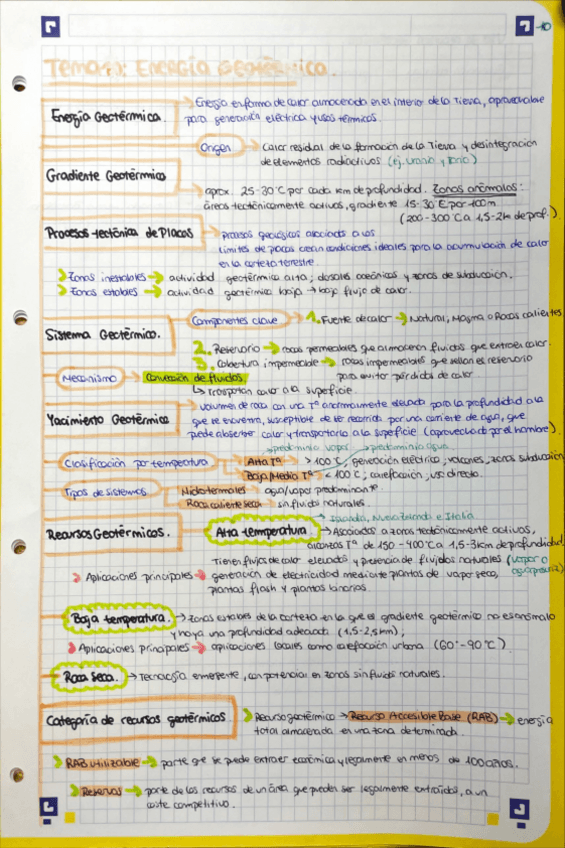 10
Tema 13: Energía Geotérmica.
Energía Geotérmica.
Energía en forma de calor almacenada en el interior de la Tierra, aprovechable
para generación eléctrica y usos térmicos.
Origen
Calor residual de la formación de la Tierra y desintegración
de elementos radiactivos (ej. Uranio y Torio)
Gradiente Geotérmico
aprox. 25-30°C por cada km de profundidad. Zonas anómalas:
áreas tectónicamente activas, gradiente 15-30°C por 100m
(200-300°C a 1,5-2km de prof.)
Procesos tectónica de Placas
procesos geológicos asociados a los
límites de placas crean condiciones ideales para la acumulación de calor
en la corteza terrestre.
Zonas inestables → actividad geotérmica alta; dorsales oceánicas y zonas de subducción.
Zonas estables → actividad geotérmica baja → bajo flujo de calor.
Sistema Geotérmico.
Componentes clave
1. Fuente de calor → Natural; Magma o Rocas calientes
2. Reservorio → rocas permeables que almacenan fluidos que extraen calor.
3. Cobertura impermeable → rocas impermeables que sellan el reservorio
para evitar pérdidas de calor.
Mecanismo → Convección de fluidos
↳ transportan calor a la superficie.
Yacimiento Geotérmico
volumen de roca con una Tª anormalmente elevada para la profundidad a la
que se encuentra, susceptible de ser recorrida por una corriente de agua, que
puede absorber calor y transportarlo a la superficie (aprovechado por el hombre).
predominio vapor
predominio agua
Clasificación por temperatura
Alta Tª → > 100°C, generación eléctrica, volcanes, zonas subducción
Baja/Media Tª → < 100°C; calefacción, uso directo
Tipos de sistemas
Hidrotermales agua/vapor predominante
Roca caliente seca sin fluidos naturales.
Recursos Geotérmicos.
Alta temperatura.
Islandia, Nueva Zelanda e Italia
Asociados a zonas tectónicamente activas,
alcanzan Tª de 150-400°C a 1,5-3km de profundidad
Tienen flujos de calor elevados y presencia de fluidos naturales (vapor o
agua
Aplicaciones principales → generación de electricidad mediante plantas de vapor seco,
plantas flash y plantas binarias.
Baja temperatura.
zonas estables de la corteza en la que el gradiente geotérmico no es anómalo
y haya una profundidad adecuada (1,5-2,5km);
Aplicaciones principales → aplicaciones locales como calefacción urbana (60°-90°C).
Roca Seca.
Tecnología emergente, con potencial en zonas sin fluidos naturales.
Categoría de recursos geotérmicos
Recurso geotérmico → Recurso Accesible Base (RAB) → energía
total almacenada en una zona determinada.
RAB Utilizable → parte que se puede extraer económica y legalmente en menos de 100 años.
Reservas → parte de los recursos de un área que pueden ser legalmente extraídos, a un
coste competitivo.